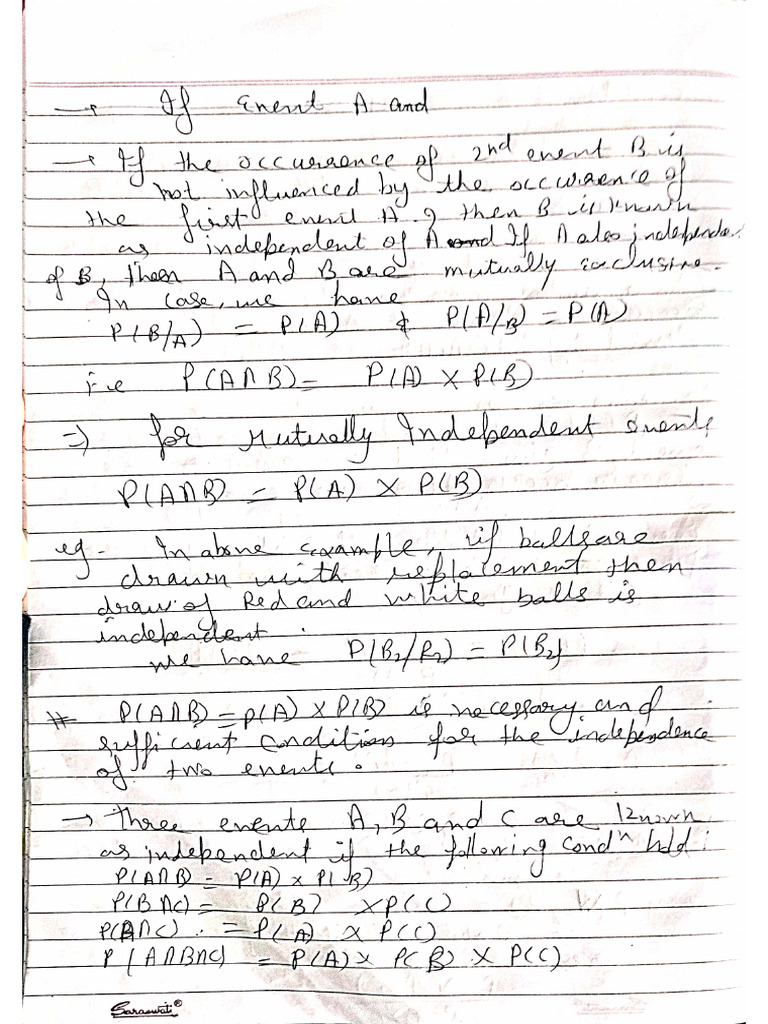 → If Event A and
→ If the occurrence of 2nd event B is
not influenced by the occurrence of
the first event A, then B is known
as independent of A and If A also independe.
of B, then A and B are mutually exclusive.
In case, we have
P(B/A) = P(A) & P(A/B) = P(A)
i.e P(A∩B) = P(A) × P(B)
⇒ for Mutually Independent Events
P(A∩B) = P(A) × P(B)
eg - In above example, if balls are
drawn with replacement then
draw of Red and white balls is
independent.
we have P(B2/R2) = P(B2)
# P(A∩B) = P(A) × P(B) is necessary and
sufficient condition for the independence
of two events.
→ Three events A, B and C are known
as independent if the following condn hold:
P(A∩B) = P(A) × P(B)
P(B∩C) = P(B) × P(C)
P(A∩C) = P(A) × P(C)
P(A∩B∩C) = P(A) × P(B) × P(C)
Saraswati®